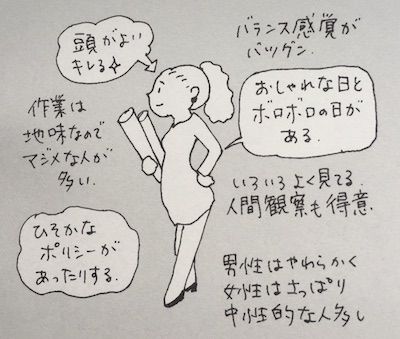 頭がよい
キレる☆
バランス感覚が
バツグン.
おしゃれな日と
ボロボロの日が
ある.
作業は
地味なので
マジメな人が
多い.
いろいろよく見てる.
人間観察も得意.
ひそかな
ポリシーが
あったりする.
男性はやわらかく
女性はさっぱり
中性的な人多し